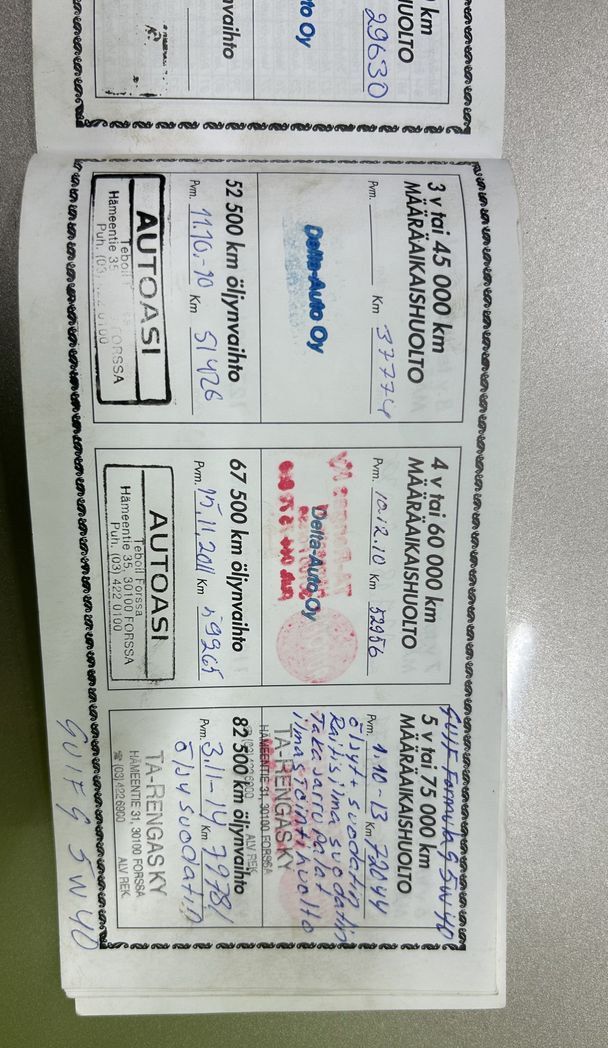 km
HUOLTO
29630
to Oy
vaihto
3 v tai 45 000 km
MÄÄRÄAIKAISHUOLTO
Pvm. Km 37774
Delta-Auto Oy
52 500 km öljynvaihto
Pvm. 11.10.-10 Km 51426
AUTOASI
Teboil
Hämeentie 35 FORSSA
Puh. (03) 422 0100
4 v tai 60 000 km
MÄÄRÄAIKAISHUOLTO
Pvm. 10.12.10 Km 52956
Delta-Auto Oy
67 500 km öljynvaihto
Pvm. 15.11.2011 Km 59265
AUTOASI
Teboil Forssa
Hämeentie 35, 30100 FORSSA
Puh. (03) 422 0100
GULF Formula G 5W40
5 v tai 75 000 km
MÄÄRÄAIKAISHUOLTO
Pvm. 1.10-13 Km 72044
öljyt + suodatin
Raitisilma suodatin
Taka jarru palat
ilmastointi huolto
TA-RENGASKY
HÄMEENTIE 31, 30100 FORSSA
(03) 422 6900 ALV REK.
82 500 km öljynvaihto
Pvm. 3.11-14 Km 79781
öljysuodatin
TA-RENGASKY
HÄMEENTIE 31, 30100 FORSSA
☎ (03) 422 6900 ALV REK.
GULF G 5W40